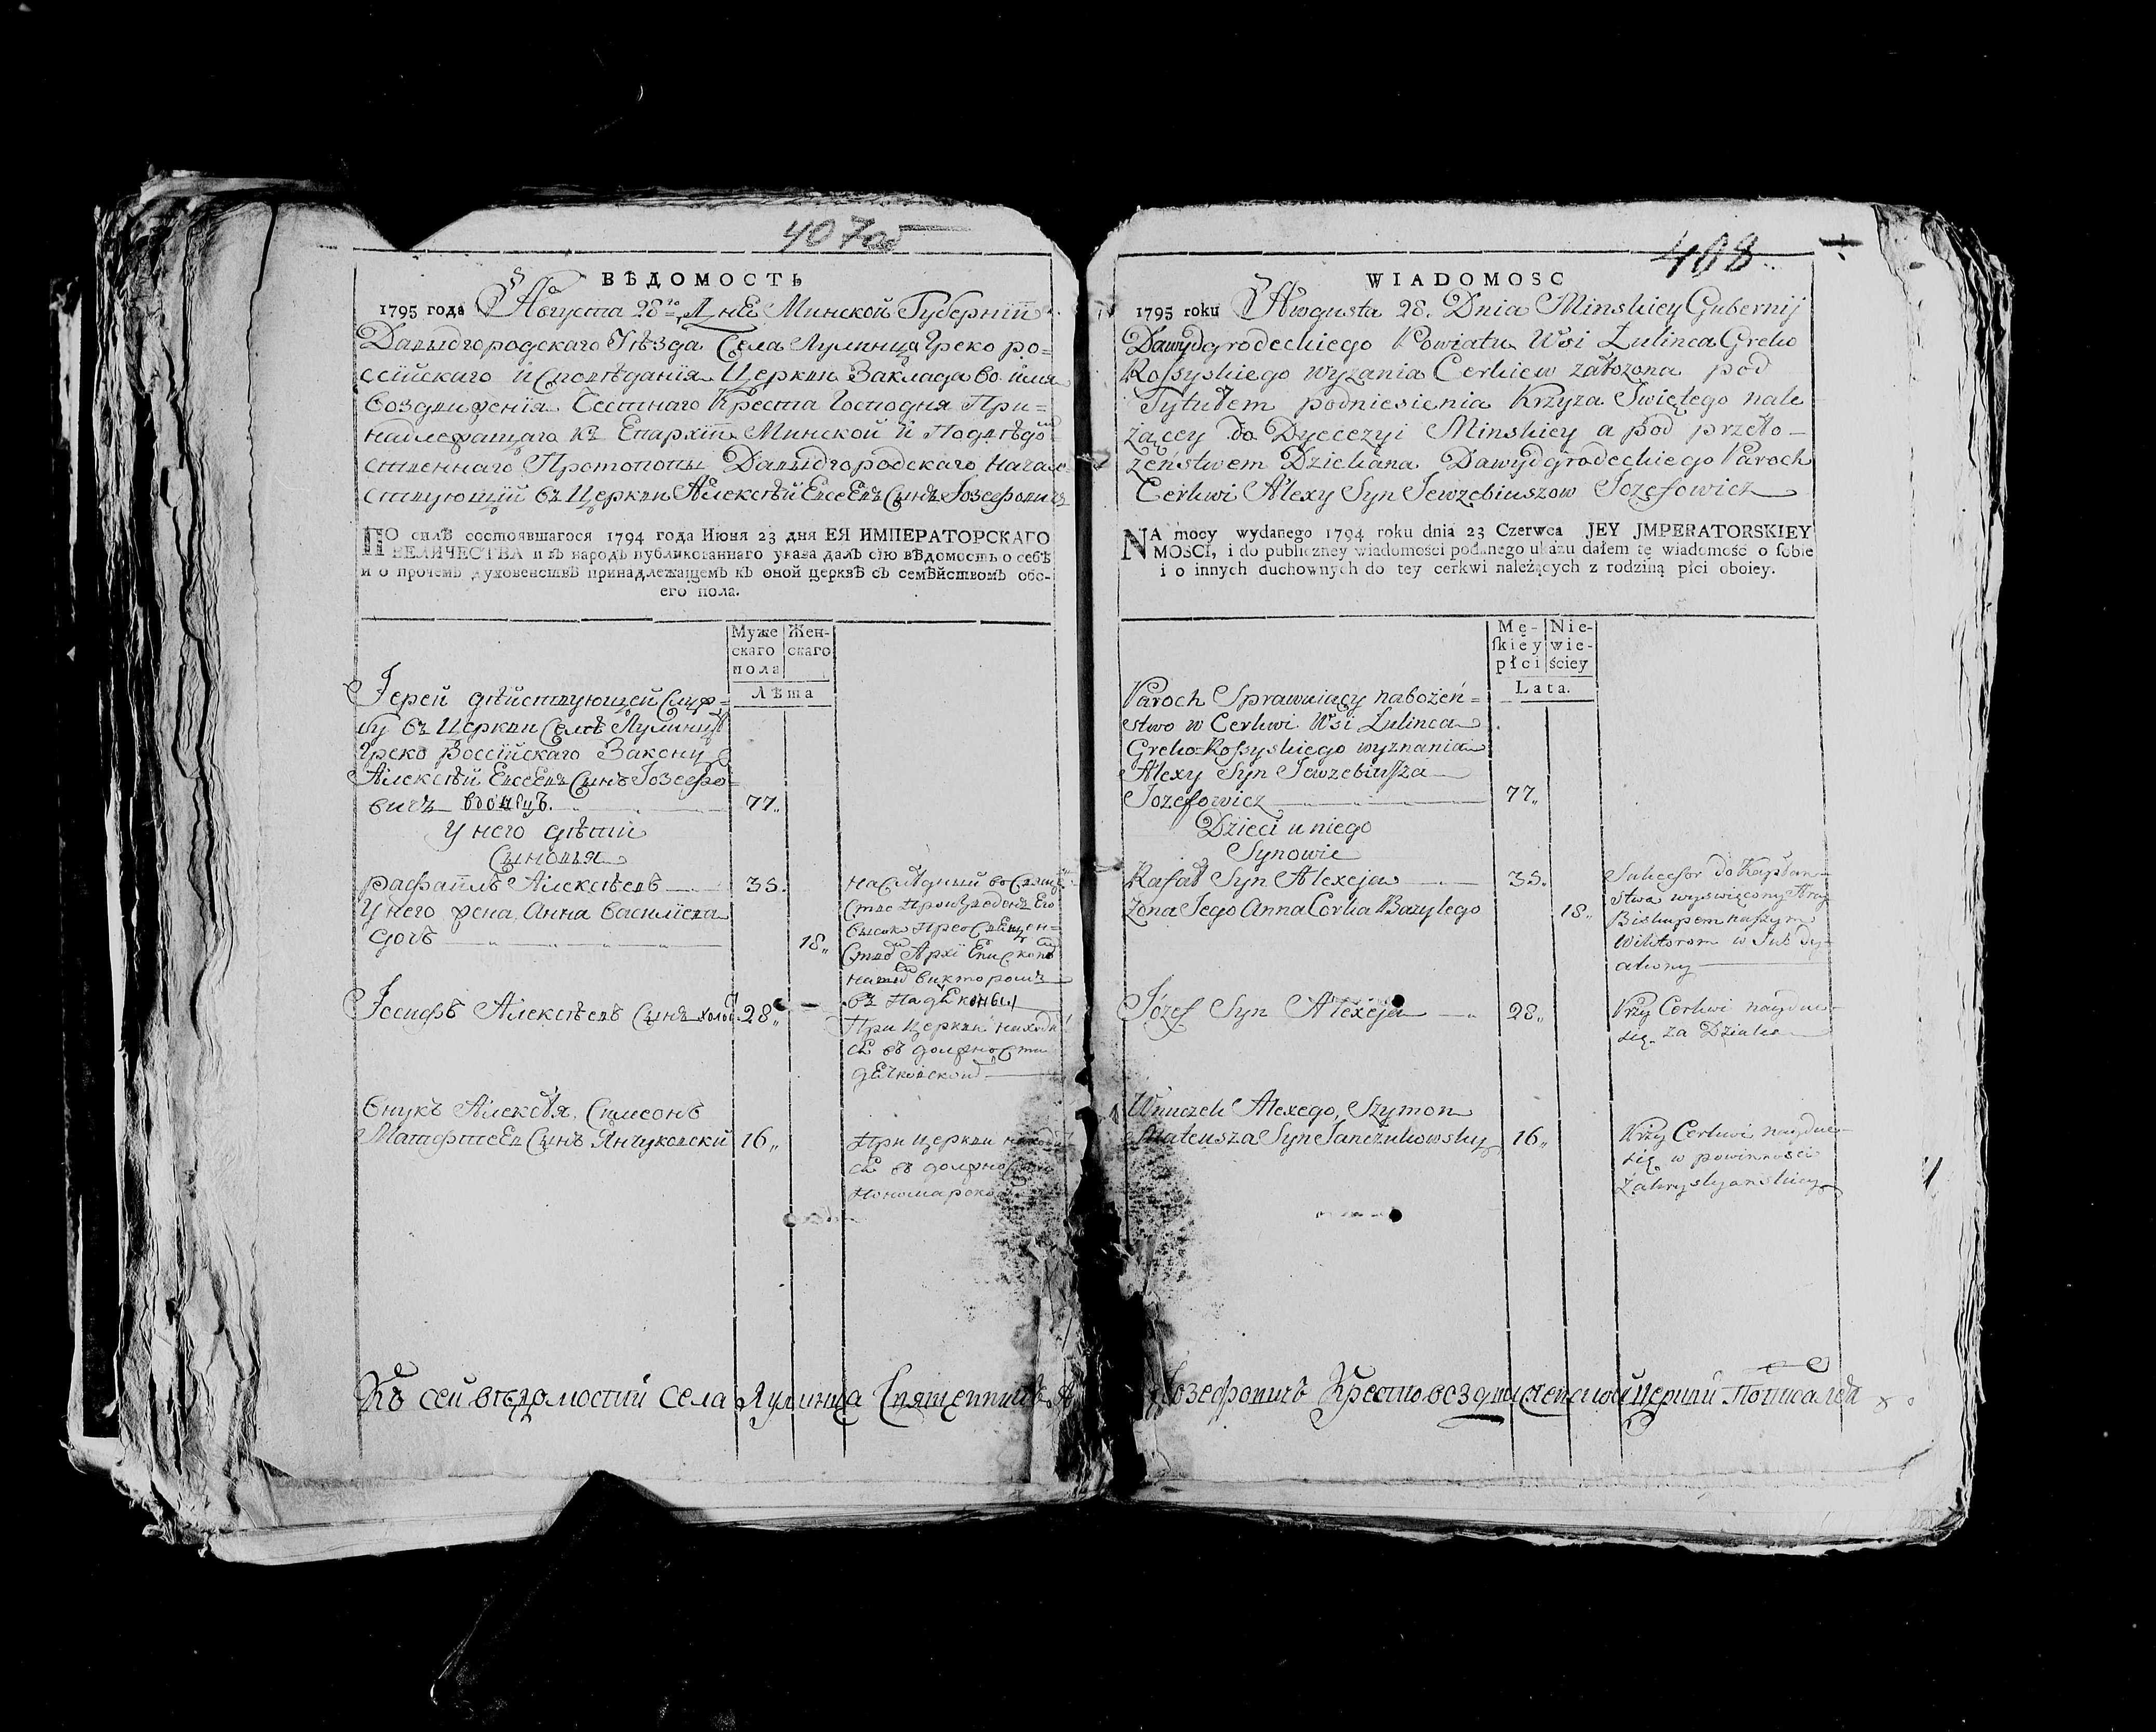 407об
ВѢДОМОСТЬ
1795 года Августа 28го Дне Минской Губернїи
Давыдгородскаго Уѣзда Села Лулинца Греко ро=
ссїйскаго Исповѣданїя Церкви Заклада во имя
Воздвиженїя Честнаго Креста Господня При=
надлежащаго къ Епархїи Минской и Подвѣдо
мственнаго Протопопы Давыдгородскаго Начал
ствующїй въ Церкви Алексѣй Евсеевъ Сынъ Іозефовичъ
ПО силѣ состоявшагося 1794 года Июня 23 дня ЕЯ ИМПЕРАТОРСКАГО
ВЕЛИЧЕСТВА и въ народъ публикованнаго указа далъ сїю вѣдомость о себѣ
и о прочемъ духовенствѣ принадлежащемъ къ оной церквѣ съ семѣйствомъ обо-
его пола.
Муже Жен-
скаго скаго
пола
Лѣта
Іерей дѣйствующей Служ=
бу въ Церкви Селѣ Лулинцѣ
Греко Россїйскаго Закону
Алексѣй Евсеевъ Сынъ Іозефо-
вичъ вдовецъ. 77.
У него дѣти
Сыновья
Рафаилъ Алексѣевъ 35.
У него жена Анна Василїева
дочь 18.
наслѣдный во Свящ
Ство Произведенъ Его
высоко Преосвящен=
Ство Архї Епископо
нашо Викторомъ
въ Падїяконы
Іосифъ Алексѣевъ Сынъ холос 28.
При Церкви находи
ся въ должности
дячковской
Внукъ Алексѣя, Симеонъ
Матафтеев Сынъ Янчуковскй 16.
При церкви находи
ся въ должнос
пономарско
Къ сей вѣдомостий села Лулинца Священникъ А
408
WIADOMOSC
1795 roku Awgusta 28. Dnia Minskiey Gubernij
Dawydgrodeckiego Powiatu Wsi Łulinca Greko
Rossyskiego wyzania Cerkiew załozona pod
Tytułem podniesienia Krzyza Swiętego nale
żącey do Dyecezyi Minskiey a pod przeło-
żeństwem Dziekana Dawydgrodeckiego Paroch
Cerkwi Alexy Syn Jewzebiuszow Jozefowicz
NA mocy wydanego 1794 roku dnia 23 Czerwca JEY JMPERATORSKIEY
MOSCI, i do publiczney wiadomości podanego ukazu dałem tę wiadomość o sobie
i o innych duchownych do tey cerkwi należących z rodziną płci oboiey.
Mę- Nie-
skiéy wie-
płci ściey
Lata.
Paroch Sprawuiący nabożeń=
stwo w Cerkwi Wsi Łulinca
Greko=Rossyskiego wyznania
Alexy Syn Jewzebiusza
Jozefowicz 77.
Dzieci u niego
Synowie
Rafał Syn Alexeja 35.
Żona Jego Anna Corka Bazylego 18.
Sukcesor do Kapłan-
stwa wyswięcony Arcy
Biskupem naszym
Wiktorom w Sub dy-
akony
Józef Syn Alexeja 28.
Przy Cerkwi nayduie
się za Dziaka
Wnuczek Alexego, Szymon
Mateusza Syn Janczukowsky 16.
Przy Cerkwi nayduie
się w powinności
Zakrystyanskiey
Іозефовичъ Кресто воздвиженской церкви Потписался